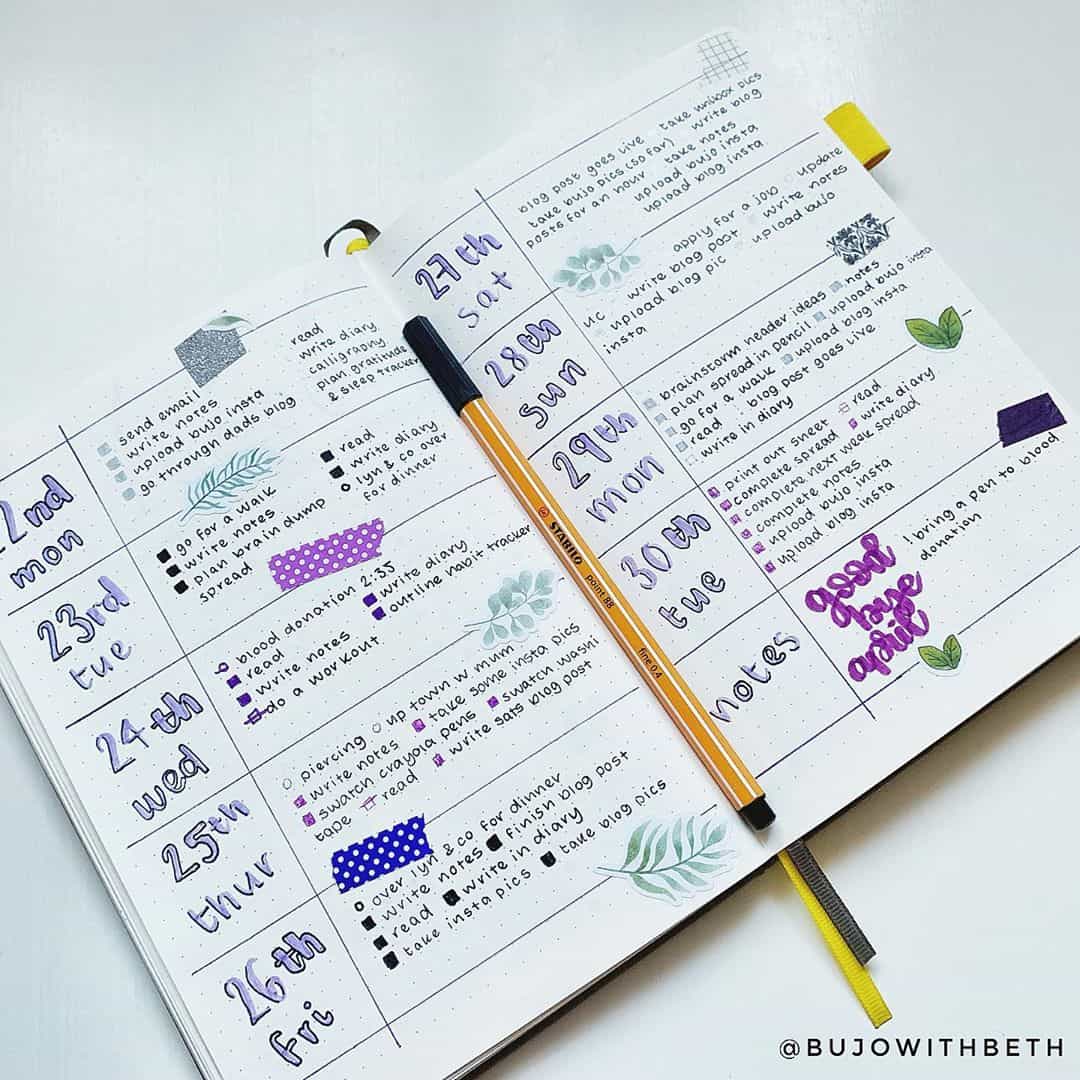 2nd
mon
send email
write notes
upload bujo insta
go through dads blog
read
write diary
calligraphy
plan gratitude
& sleep tracker
23rd
tue
go for a walk
write notes
plan brain dump
spread
read
write diary
lyn & co over
for dinner
24th
wed
blood donation 2:35
read
write notes
do a workout
write diary
outline habit tracker
25th
thur
piercing up town w mum
write notes take some insta pics
swatch crayola pens swatch washi
tape read write sats blog post
26th
fri
over lyn & co for dinner
write notes finish blog post
read write in diary
take insta pics take blog pics
27th
sat
blog post goes live take unibox pics
take bujo pics (so far) write blog
posts for an hour take notes
upload bujo insta
upload blog insta
28th
sun
apply for a job update
uc write blog post write notes
upload blog pic upload bujo
insta
29th
mon
brainstorm header ideas notes
plan spread in pencil upload bujo insta
go for a walk upload blog insta
read blog post goes live
write in diary
30th
tue
print out sheet read
complete spread write diary
complete next week spread
complete notes
upload bujo insta
upload blog insta
notes
good
bye
april
! bring a pen to blood
donation
STABILO point 88 fine 0.4
@BUJOWITHBETH